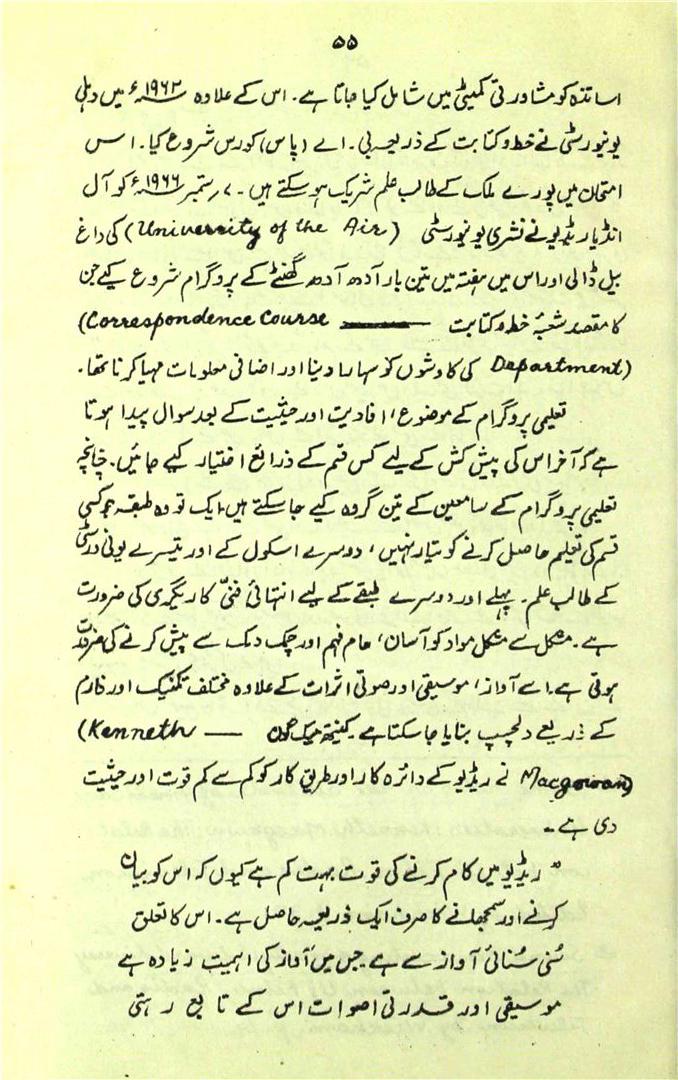 ۵۵
اساتذہ کو مشاورتی کمیٹی میں شامل کیا جاتا ہے۔ اس کے علاوہ ۱۹۶۲ء میں دہلی
یونیورسٹی نے خط و کتابت کے ذریعہ بی۔ اے (پاس) کورس شروع کیا۔ اس
امتحان میں پورے ملک کے طالب علم شریک ہو سکتے ہیں۔ ۷؍ ستمبر ۱۹۶۶ء کو آل
انڈیا ریڈیو نے نشری یونیورسٹی (University of the Air) کی داغ
بیل ڈالی اور اس میں ہفتہ میں تین بار آدھ آدھ گھنٹے کے پروگرام شروع کیے جن
کا مقصد شعبۂ خط و کتابت (Correspondence Course
Department) کی کاوشوں کو سہارا دینا اور اضافی معلومات مہیا کرنا تھا۔
تعلیمی پروگرام کے موضوع، افادیت اور حیثیت کے بعد سوال پیدا ہوتا
ہے کہ آخر اس کی پیش کش کے لیے کس قسم کے ذرائع اختیار کیے جائیں۔ چنانچہ
تعلیمی پروگرام کے سامعین کے تین گروہ کیے جا سکتے ہیں۔ ایک تو وہ طبقہ جو کسی
قسم کی تعلیم حاصل کرنے کو تیار نہیں، دوسرے اسکول کے اور تیسرے یونی ورسٹی
کے طالب علم۔ پہلے اور دوسرے طبقے کے لیے انتہائی فنّی کاریگری کی ضرورت
ہے۔ مشکل سے مشکل مواد کو آسان، عام فہم اور چمک دمک سے پیش کرنے کی ضرورت
ہوتی ہے۔ اسے آواز، موسیقی اور صوتی اثرات کے علاوہ مختلف تکنیک اور فارم
کے ذریعے دلچسپ بنایا جا سکتا ہے۔ کینتھ میک گون — (Kenneth
Macgowan) نے ریڈیو کے دائرہ کار اور طریق کار کو کم سے کم قوت اور حیثیت
دی ہے۔
"ریڈیو میں کام کرنے کی قوت بہت کم ہے کیوں کہ اس کو بیان
کرنے اور سمجھانے کا صرف ایک ذریعہ حاصل ہے۔ اس کا تعلق
سُنی سُنائی آواز سے ہے جس میں آواز کی اہمیت زیادہ ہے
موسیقی اور قدرتی اصوات اس کے تابع رہتی